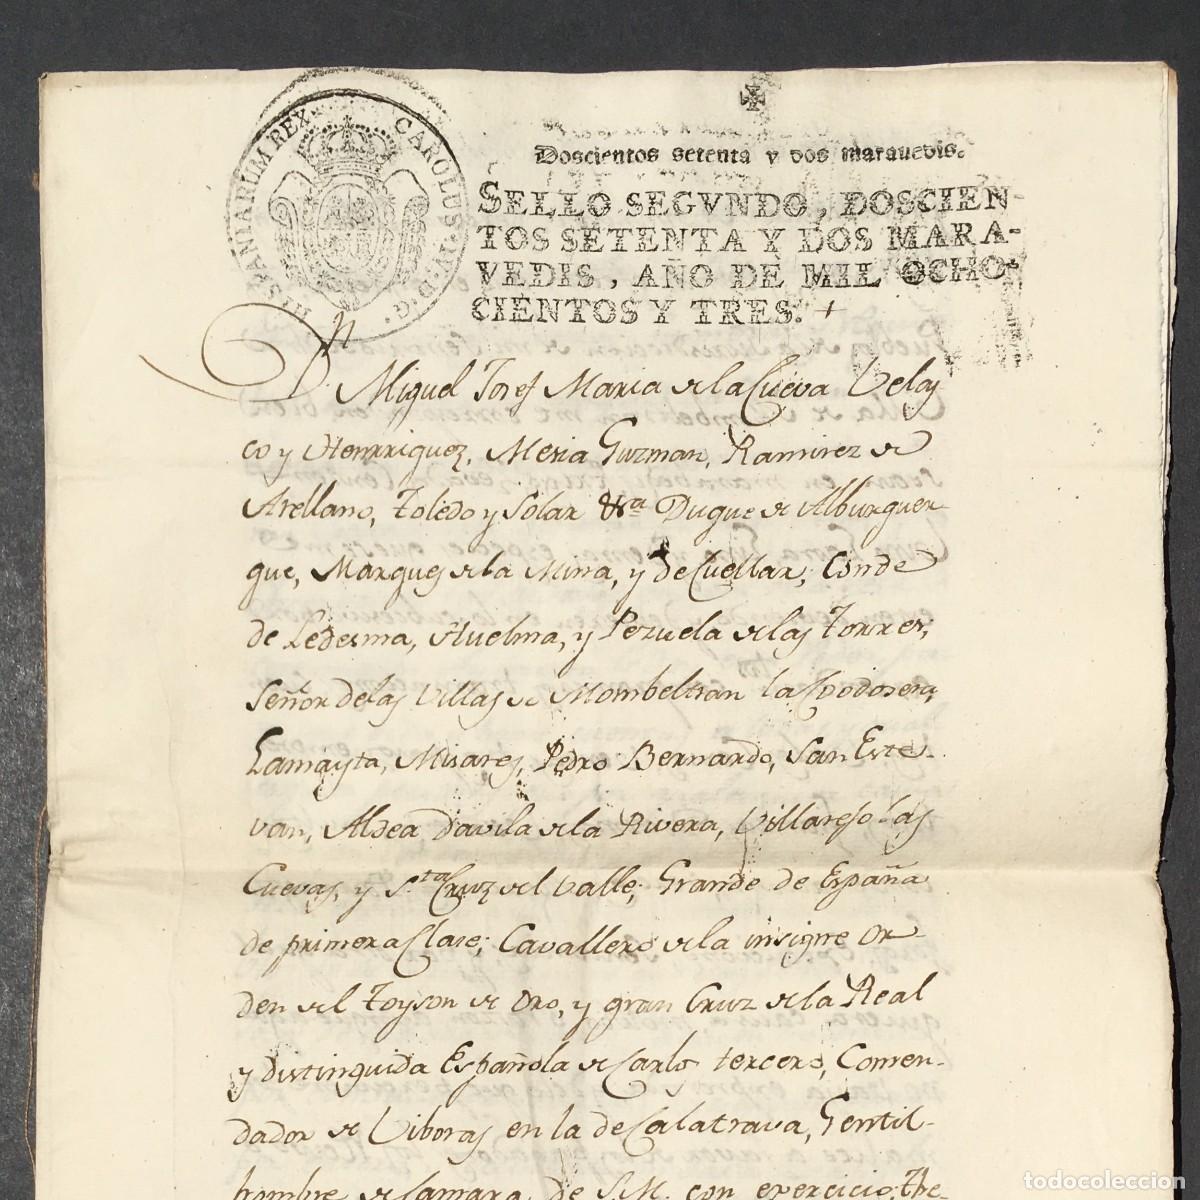 HISPANIARUM REX CAROLUS·IV·D·G·
Doscientos setenta y dos marauedis.
SELLO SEGVNDO, DOSCIEN-
TOS SETENTA Y DOS MARA-
VEDIS, AÑO DE MIL OCHO-
CIENTOS Y TRES. +
Dn. Miguel Josef Maria de la Cueva Velas
co y Henrriquez, Mesia Guzman, Ramirez de
Arellano, Toledo y Solar &ra Duque de Alburquer
que, Marques de la Mina, y de Cuellar; Conde
de Ledesma, Huelma, y Pezuela de las Torres;
Señor de las Villas de Mombeltran la Codosera,
Lamayta, Mijares, Pedro Bernardo, San Este-
van, Aldea Davila de la Rivera, Villarejo las
Cuevas, y S.ta Cruz del Valle; Grande de España
de primera Clase; Cavallero de la insigne Or-
den del Toyson de Oro, y gran Cruz de la Real
y distinguida Española de Carlos tercero, Comen-
dador de Viboras en la de Calatrava, Gentil-
hombre de Camara de S.M. con exercicio, The-
todocoleccion